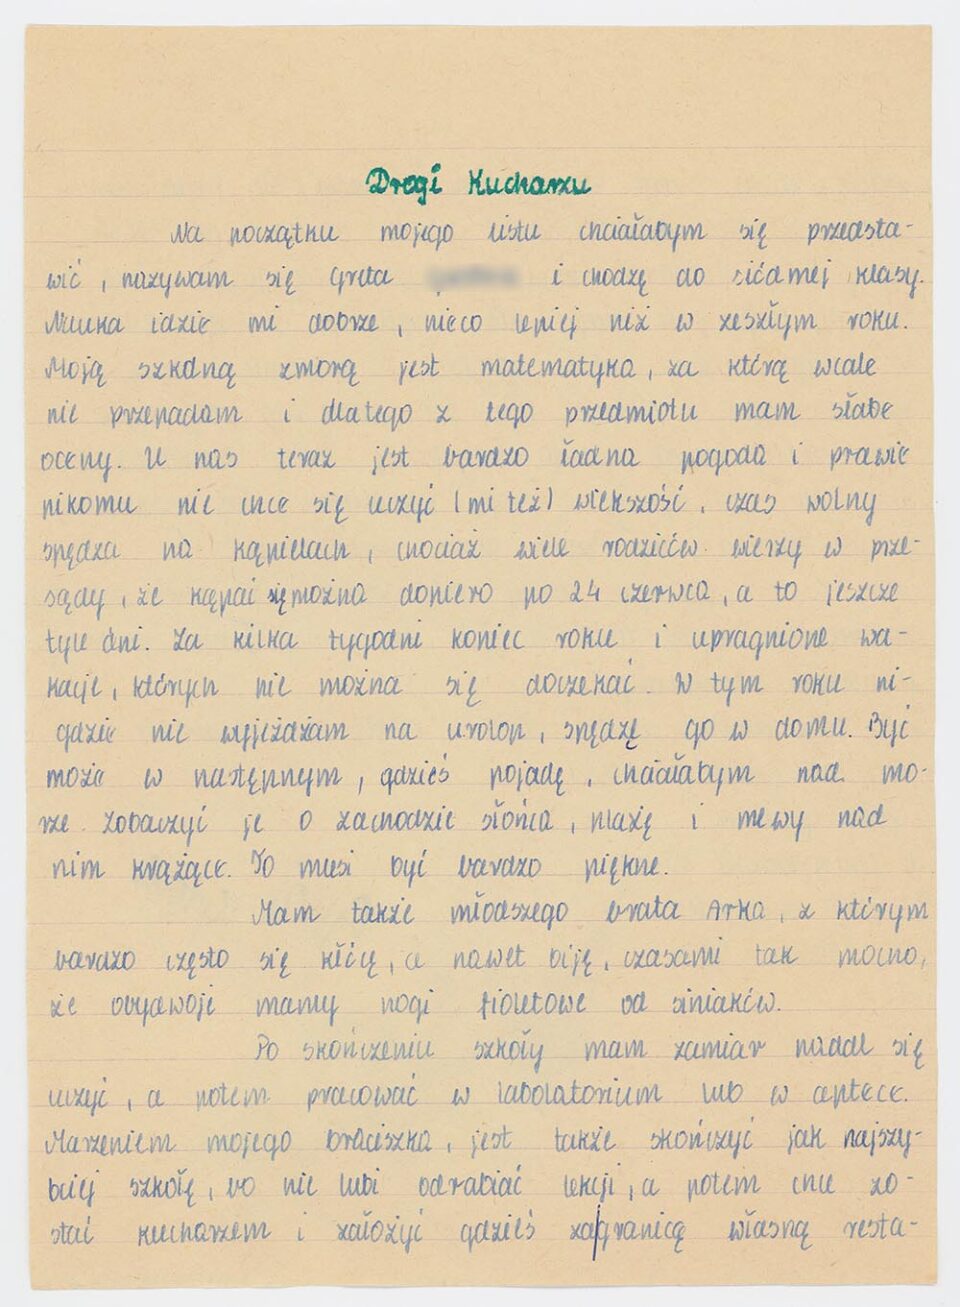 Drogi Kucharzu
Na początku mojego listu chciałabym się przedsta-
wić, nazywam się Greta i chodzę do siódmej klasy.
Nauka idzie mi dobrze, nieco lepiej niż w zeszłym roku.
Moją szkolną zmorą jest matematyka, za którą wcale
nie przepadam i dlatego z tego przedmiotu mam słabe
oceny. U nas teraz jest bardzo ładna pogoda i prawie
nikomu nie chce się uczyć (mi też) większość, czas wolny
spędza na kąpielach, chociaż wiele rodziców wierzy w prze-
sądy, że kąpać się można dopiero po 24 czerwca, a to jeszcze
tyle dni. Za kilka tygodni koniec roku i upragnione wa-
kacje, których nie można się doczekać. W tym roku ni-
gdzie nie wyjeżdżam na urlop, spędzę go w domu. Być
może w następnym, gdzieś pojadę, chciałabym nad mo-
rze. Zobaczyć je o zachodzie słońca, plażę i mewy nad
nim krążące. To musi być bardzo piękne.
Mam także młodszego brata Arka, z którym
bardzo często się kłócę, a nawet biję, czasami tak mocno,
że obydwoje mamy nogi fioletowe od siniaków.
Po skończeniu szkoły mam zamiar nadal się
uczyć, a potem pracować w labolatorium lub w aptece.
Marzeniem mojego braciszka, jest także skończyć jak najszy-
bciej szkołę, bo nie lubi odrabiać lekcji, a potem chce zo-
stać kucharzem i założyć gdzieś za|granicą własną resta-